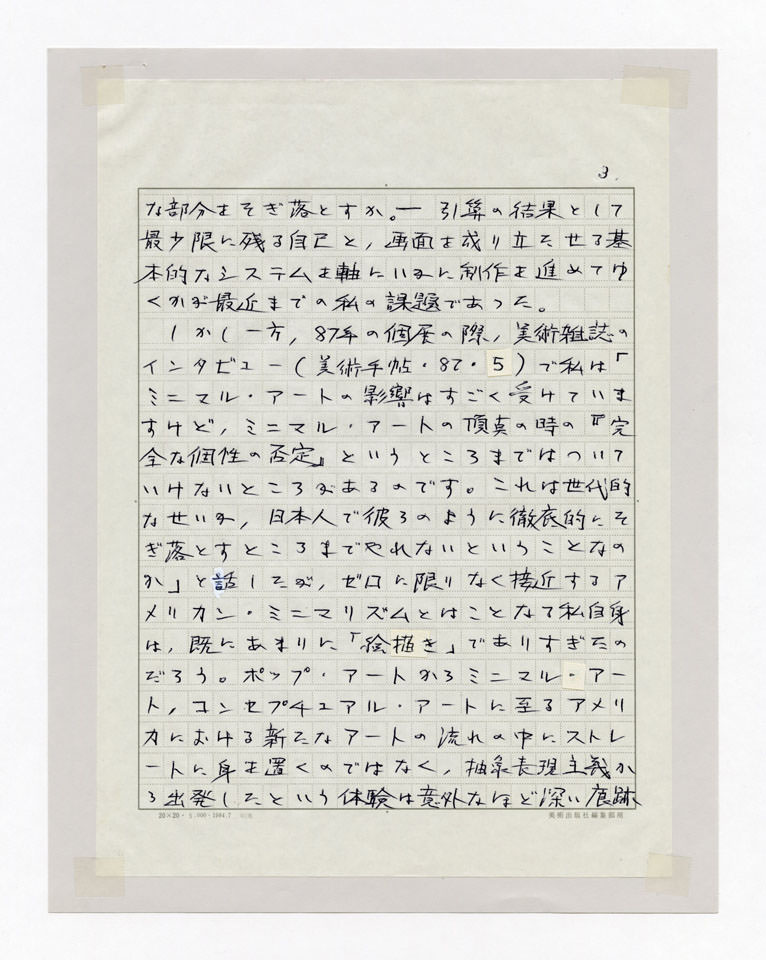 3.
な部分をそぎ落とすか。― 引算の結果として
最少限に残る自己と，画面を成り立たせる基
本的なシステムを軸にいかに制作を進めてゆ
くかが最近までの私の課題であった。
しかし一方，87年の個展の際，美術雑誌の
インタビュー（美術手帖・87・5）で私は「
ミニマル・アートの影響はすごく受けていま
すけど，ミニマル・アートの頂点の時の『完
全な個性の否定』というところまではついて
いけないところがあるのです。これは世代的
なせいか，日本人で彼らのように徹底的にそ
ぎ落とすところまでやれないということなの
か」と話したが，ゼロに限りなく接近するア
メリカン・ミニマリズムとはことなて私自身
は，既にあまりに「絵描き」でありすぎたの
だろう。ポップ・アートからミニマル・アー
ト，コンセプチュアル・アートに至るアメリ
カにおける新たなアートの流れの中にストレ
ートに身を置くのではなく，抽象表現主義か
ら出発したという体験は意外なほど深い痕跡
20×20・5,000・1984.7
美術出版社編集部用